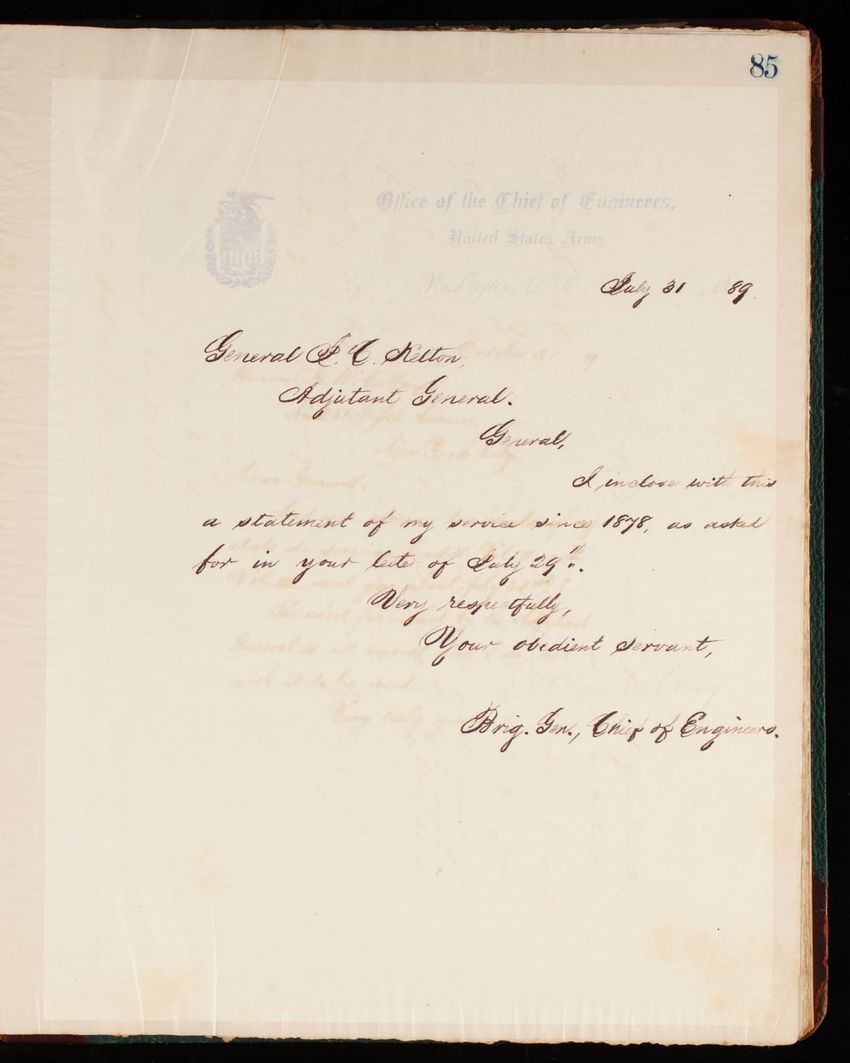 85
Office of the Chief of Engineers,
United States Army.
Washington, D.C., July 31, 1889.
General J. C. Kelton,
Adjutant General.
General,
I inclose with this
a statement of my service since 1878, as asked
for in your lette of July 29th.
Very respectfully,
Your obedient servant,
Brig. Gen., Chief of Engineers.